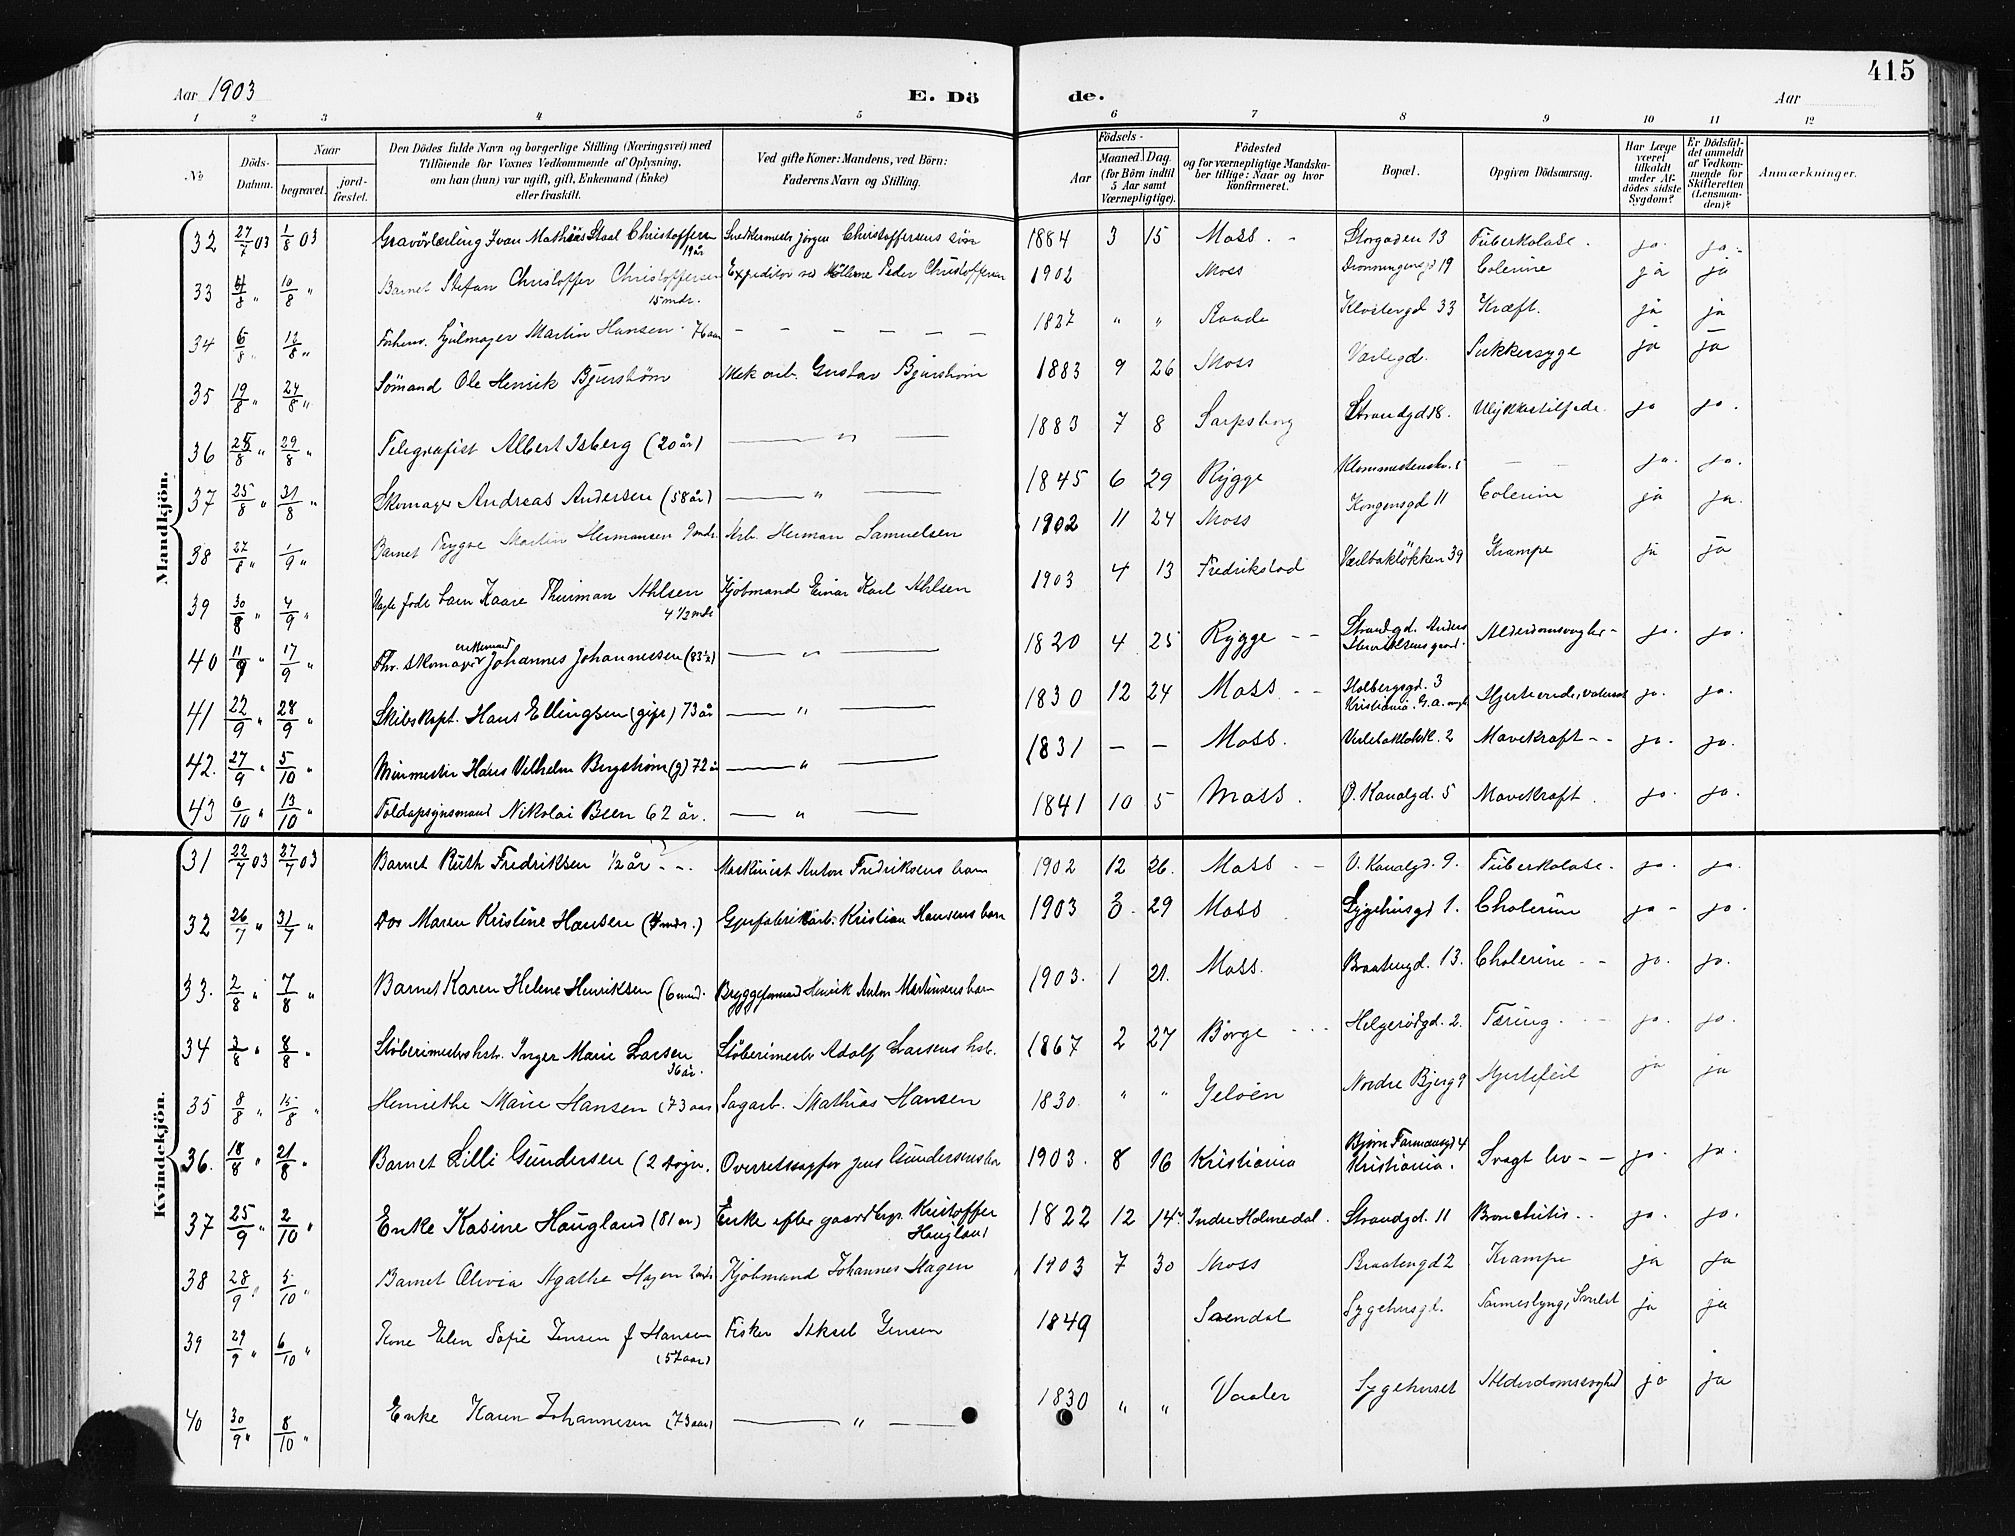 415
Aar 1903
E. Dö de.
Aar
1 2 3 4 5 6 7 8 9 10 11 12
No
Döds-Datum.
Naar
begravet.
jord-fæstet.
Den Dödes fulde Navn og borgerlige Stilling (Næringsvei) med
Tilföiende for Voxnes Vedkommende af Oplysning,
om han (hun) var ugift, gift, Enkemand (Enke)
eller fraskilt.
Ved gifte Koner: Mandens, ved Börn:
Faderens Navn og Stilling.
Födsels-
Aar
Maaned Dag
(for Börn indtil
5 Aar samt
Værnepligtige).
Födested
og for værnepligtige Mandska-
ber tillige: Naar og hvor
konfirmeret.
Bopæl.
Opgiven Dödsaarsag.
Har Læge
været
tilkaldt
under Af-
dödes sidste
Sygdom?
Er Dödsfal-
det anmeldt
af Vedkom-
mende for
Skifteretten
(Lensman-
den)?
Anmærkninger.
Mandkjön.
32 27/7 03 1/8 03 Gravörlærling Ivan Mathias Staal Christoffersen 19 år Snedkermester Jörgen Christoffersens sön 1884 3 15 Moss. Storgaden 13 Tuberkolose. ja. ja.
33 4/8 " 10/8 " Barnet Stefan Christoffer Christoffersen 15 mdr. Expeditör ved Möllerne Peder Christoffersen 1902 Moss Dronningensgd 19 Colerine ja ja
34 6/8 " 10/8 " Forhenv. Hjulmager Martin Hansen 76 aar — — — — — — 1827 " " Raade Klostergd 33 Kræft. ja ja
35 19/8 " 24/8 " Sömand Ole Henrik Bjurström Mek arb. Gustav Bjurström 1883 9 26 Moss Varlegd. Sukkersyge ja ja
36 25/8 " 29/8 " Telegrafist Albert Isberg (20 år) — " — 1883 7 8 Sarpsborg Strandgd 18. Ulykkestilfælde. ja ja.
37 25/8 " 31/8 " Skomager Andreas Andersen (58 år) — " — 1845 6 29 Rygge — — ja. ja.
38 27/8 " 1/9 " Barnet Trygve Martin Hermansen 9 mdr. Arb. Herman Samuelsen 1902 11 24 Moss Kongensgd 11 Colerine ja ja.
39 30/8 " 4/9 " Ægte födt barn Kaare Thurman Ahlsen 4 1/2 mdr Kjöbmand Einar Karl Ahlsen 1903 4 13 Fredrikstad Værlbaklökken 39 Krampe ja ja
40 11/9 " 17/9 " Fhv. skomager enkemand Johannes Johannessen (83 1/2) — " — 1820 4 25 Rygge -- Strandgd. Anders Henriksens gaard. Alderdomssvaghet - ja. ja.
41 22/9 " 28/9 " Skibskapt. Hans Ellingsen (gift) 73 år — " — 1830 12 24 Moss -- Holbergsgd. 3 Kristiania. ja. ja.
42. 27/9 " 5/10 " Murmester Hans Vilhelm Bergström (g) 72 år — " — 1831 — — Moss. Mavekræft -- ja. ja.
43 6/10 " 13/10 " Toldopsynsmand Nikolai Been 62 år. — " — 1841 10 5 Moss. Ö. Kanalgd. 5 Mavekræft. ja. ja.
Kvindekjön.
31 22/7 03 27/7 03 Barnet Ruth Fredriksen 1/2 år -- Maskinist Anton Fredriksens barn 1902 12 26. Moss -- V. Kanalgd. 9. Tuberkolose. ja. ja.
32 26/7 " 31/7 " Dos Maren Kristine Hansen (4 mdr.) Gjærfabrikarb. Kristian Hansens barn 1903 3. 29 Moss Sygehusgd 1. Cholerin ja - ja.
33. 2/8 " 7/8 " Barnet Karen Helene Henriksen (6 mnd. Bryggeformand Henrik Anton Martinsens barn 1903. 1 21. Moss. Braatengd. 13. Cholerine -- ja. ja.
34 3/8 " 8/8 " Stöberimesterhstr. Inger Marie Larsen 36 år. Stöberimester Adolf Larsens hstr. 1867 2 27 Borge --- Helgerödgd. 2. Tæring. ja. ja.
35 8/8 " 15/8 " Henriethe Marie Hansen (73 aar) Sagarb. Mathias Hansen 1830. " " Gelöen Nordre Bjerg 9 Hjertefeil ja ja
36. 18/8 " 21/8 " Barnet Lilli Gundersen (2 dogn. Overretssagför Jens Gundersens barn 1903. 8 16 Kristiania Bjørn Farmansgd 4 Kristiania. Svagt liv -- ja. ja.
37 25/9 " 2/10 " Enke Kasine Haugland (81 år) Enke efter gaardbr. Kristoffer Haugland 1822 12 14 Indre Holmedal. Strandgd. 11 Bronchitis -- ja. ja.
38 28/9 " 5/10 " Barnet Olivia Agathe Hagen 2 mdr Kjöbmand Johannes Hagen 1903 7 30 Moss Braatengd 2 Krampe ja ja
39 29/9 " 6/10 " Kone Elen Sofie Jensen f Hansen (57 aar) Fisker Aksel Jensen 1849 Saendal Sygehusgt. ja ja
40 30/9 " 8/10 " Enke Karen Johannesen (73 aar) — " — 1830 " " Vaaler Sygehuset Alderdomssvaghed ja ja